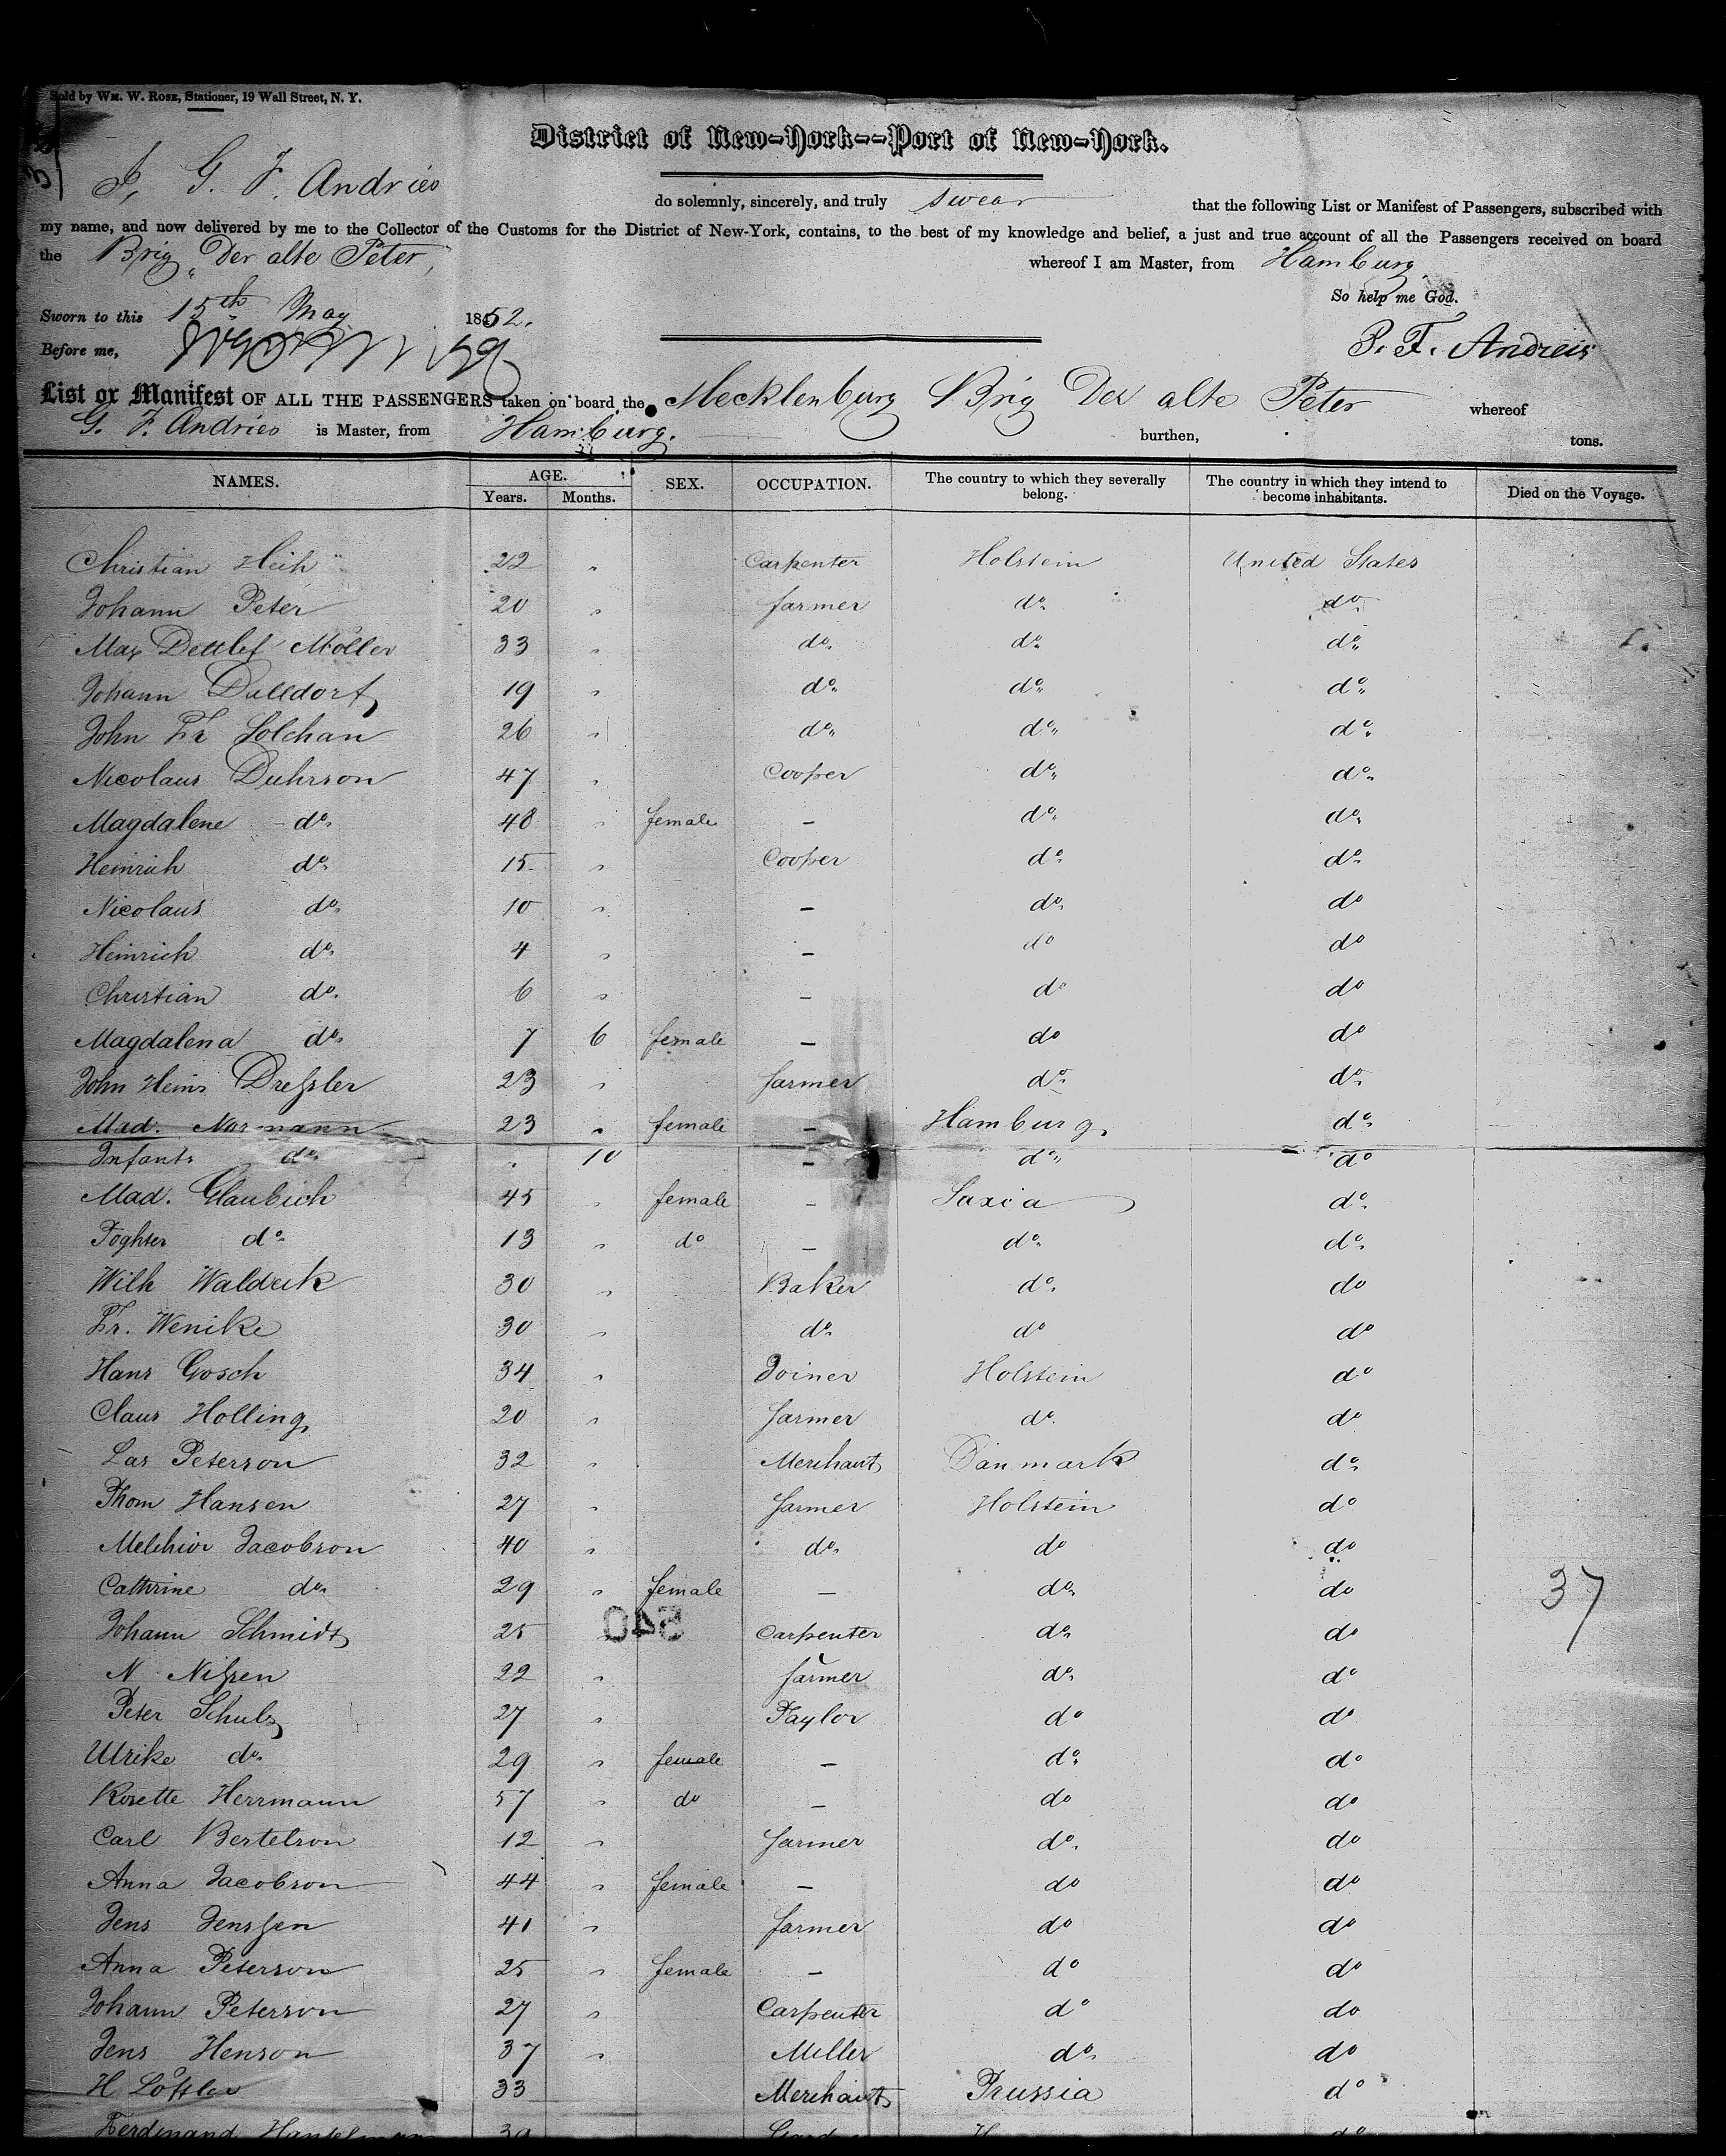 Sold by Wm. W. Rose, Stationer, 19 Wall Street, N. Y.
District of New-York--Port of New-York.
I, G. F. Andries do solemnly, sincerely, and truly swear that the following List or Manifest of Passengers, subscribed with
my name, and now delivered by me to the Collector of the Customs for the District of New-York, contains, to the best of my knowledge and belief, a just and true account of all the Passengers received on board
the Brig "Der alte Peter" whereof I am Master, from Hamburg
So help me God.
Sworn to this 15th May 1852.
Before me, P. F. Andreis
List or Manifest OF ALL THE PASSENGERS taken on board the Mecklenburg Brig Der alte Peter whereof
G. F. Andries is Master, from Hamburg. burthen, tons.
NAMES. AGE. Years. Months. SEX. OCCUPATION. The country to which they severally belong. The country in which they intend to become inhabitants. Died on the Voyage.
Christian Heih 22 " Carpenter Holstein United States
Johann Peter 20 " farmer do. do.
Max Dettlef Möller 33 " do. do. do.
Johann Dulldorf 19 " do. do. do.
John Fr Solchan 26 " do. do. do.
Nicolaus Duhrson 47 " Cooper do. do.
Magdalene do. 48 " female – do. do.
Heinrich do. 15 " Cooper do. do.
Nicolaus do. 10 " – do. do
Heinrich do. 4 " – do do
Christian do. 6 " – do do
Magdalena do. 7 6 female – do do
John Heinr Dreſsler 23 " farmer do. do.
Mad. Normann 23 " female – Hamburg. do.
Infants do. " 10 – do. do
Mad. Glaubich 45 " female – Saxia do.
Toghter do. 13 " do – do. do.
Wilh Waldeck 30 " Baker do. do
Fr. Wenike 30 " do. do do
Hans Gosch 34 " Joiner Holstein do
Claus Holling 20 " farmer do. do
Las Peterson 32 " Merchant Danmark do.
Thom Hansen 27 " farmer Holstein do
Melchior Jacobson 40 " do. do do
Cathrine do. 29 " female – do. do 37
540
Johann Schmidt 25 " Carpenter do. do
N Niſsen 22 " farmer do. do
Peter Schulz 27 " Taylor do do
Ulrike do. 29 " female – do. do
Rosette Herrmann 57 " do – do do
Carl Bertelson 12 " farmer do. do
Anna Jacobson 44 " female – do do
Jens Jenſsen 41 " farmer do do
Anna Peterson 25 " female – do do
Johann Peterson 27 " Carpenter do do
Jens Henson 37 " Miller do. do
H Löffler 33 Merchant Prussia do
Ferdinand 39 do